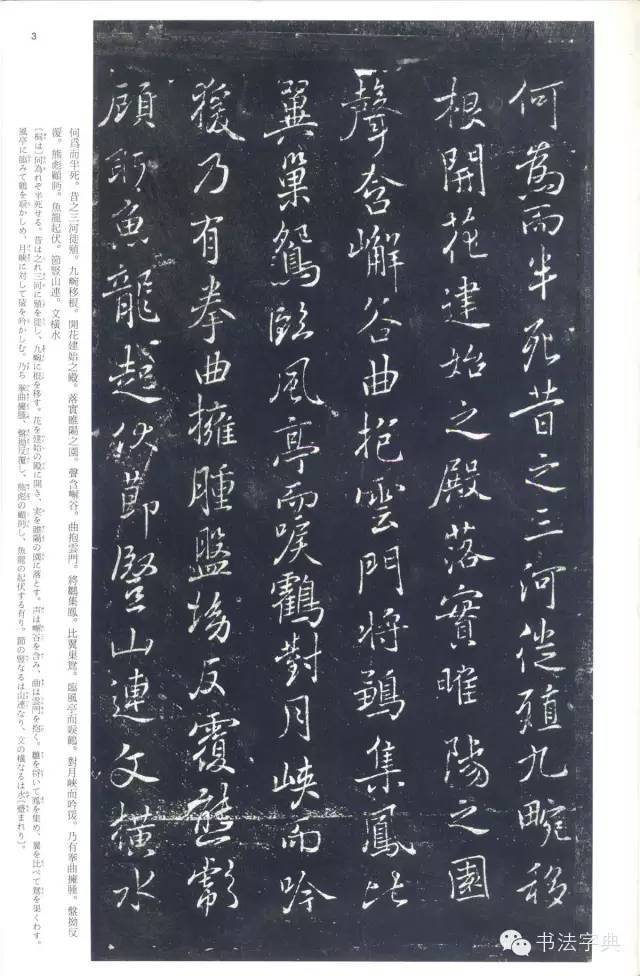 何為而半死昔之三河徙殖九畹移
根開花建始之殿落實睢陽之園
聲含嶰谷曲抱雲門将鶵集鳳比
翼巢鴛臨風亭而唳鶴對月峽而吟
猨乃有拳曲擁腫盤坳反覆熊彪
顧盼魚龍起伏節豎山連文橫水
何爲而半死。昔之三河徙殖。九畹移根。開花建始之殿。落實睢陽之園。聲含嶰谷。曲抱雲門。将鶵集鳳。比翼巢鴛。臨風亭而唳鶴。對月峽而吟猨。乃有拳曲擁腫。盤坳反
覆。熊彪顧盼。魚龍起伏。節豎山連。文橫水
〔桐は〕何為れぞ半死せる。昔は之れ三河に殖を徙し、九畹に根を移す。花を建始の殿に開き、実を睢陽の園に落とす。声は嶰谷を含み、曲は雲門を抱く。鶵を将いて鳳を集め、翼を比べて鴛を巣くわす。
風亭に臨みて鶴を唳かしめ、月峡に対して猿を吟かしむ。乃ち拳曲擁腫、盤坳反覆し、熊彪の顧盼し、魚龍の起伏する有り。節の豎なるは山連なり、文の横なるは水〔蹙まれり〕。
3
书法字典